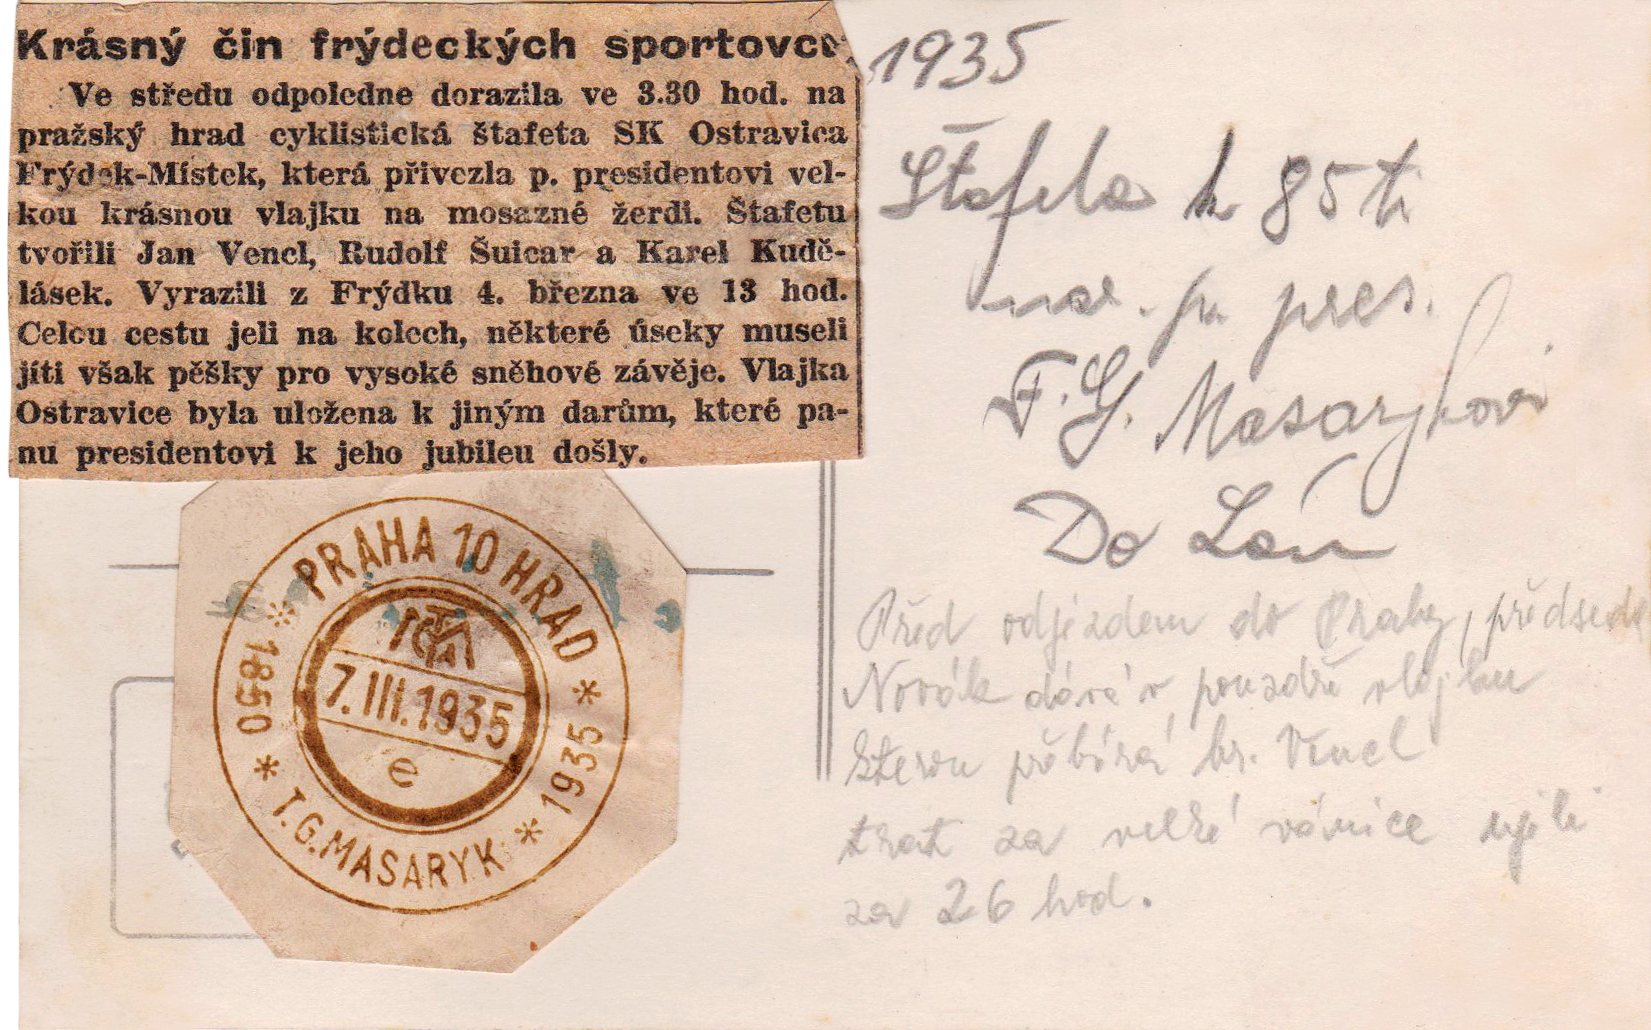 Krásný čin frýdeckých sportovců.
Ve středu odpoledne dorazila ve 3.30 hod. na
pražský hrad cyklistická štafeta SK Ostravica
Frýdek-Místek, která přivezla p. presidentovi vel-
kou krásnou vlajku na mosazné žerdi. Štafetu
tvořili Jan Vencl, Rudolf Šuicar a Karel Kudě-
lásek. Vyrazili z Frýdku 4. března ve 13 hod.
Celou cestu jeli na kolech, některé úseky museli
jíti však pěšky pro vysoké sněhové závěje. Vlajka
Ostravice byla uložena k jiným darům, které pa-
nu presidentovi k jeho jubileu došly.
PRAHA 10 HRAD
7.III.1935
e
* 1850 * T.G.MASARYK * 1935 *
1935
Štafeta k 85ti
nar. p. pres.
T. G. Masarykovi
Do Lán
Před odjezdem do Prahy, předseda
Novák dává v pouzdře vlajku
kterou přebírá br. Vencl
trať za velké vánice ujeli
za 26 hod.